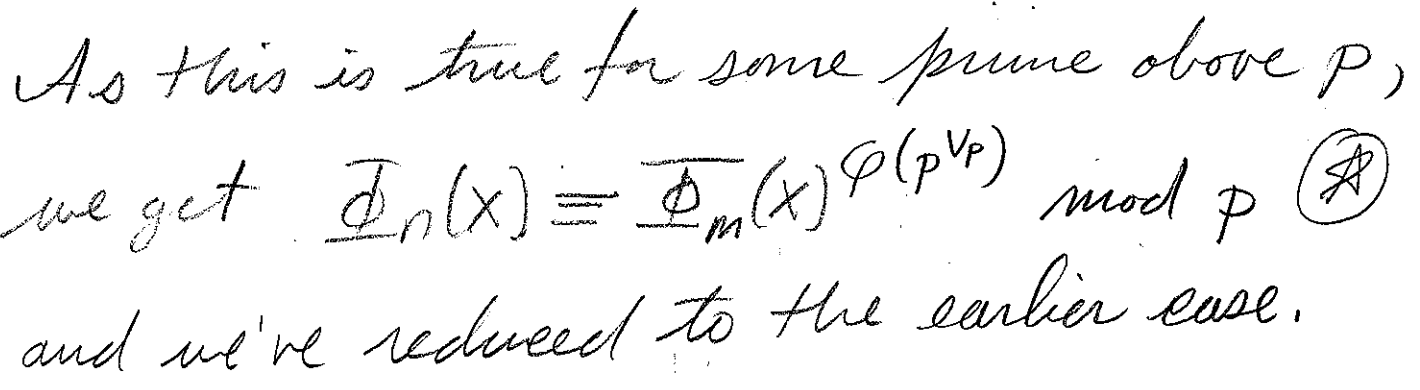 As this is true for some prime above p,
we get Φₙ(x) ≡ Φₘ(x)^φ(p^νp) mod p ⊛
and we've reduced to the earlier case.